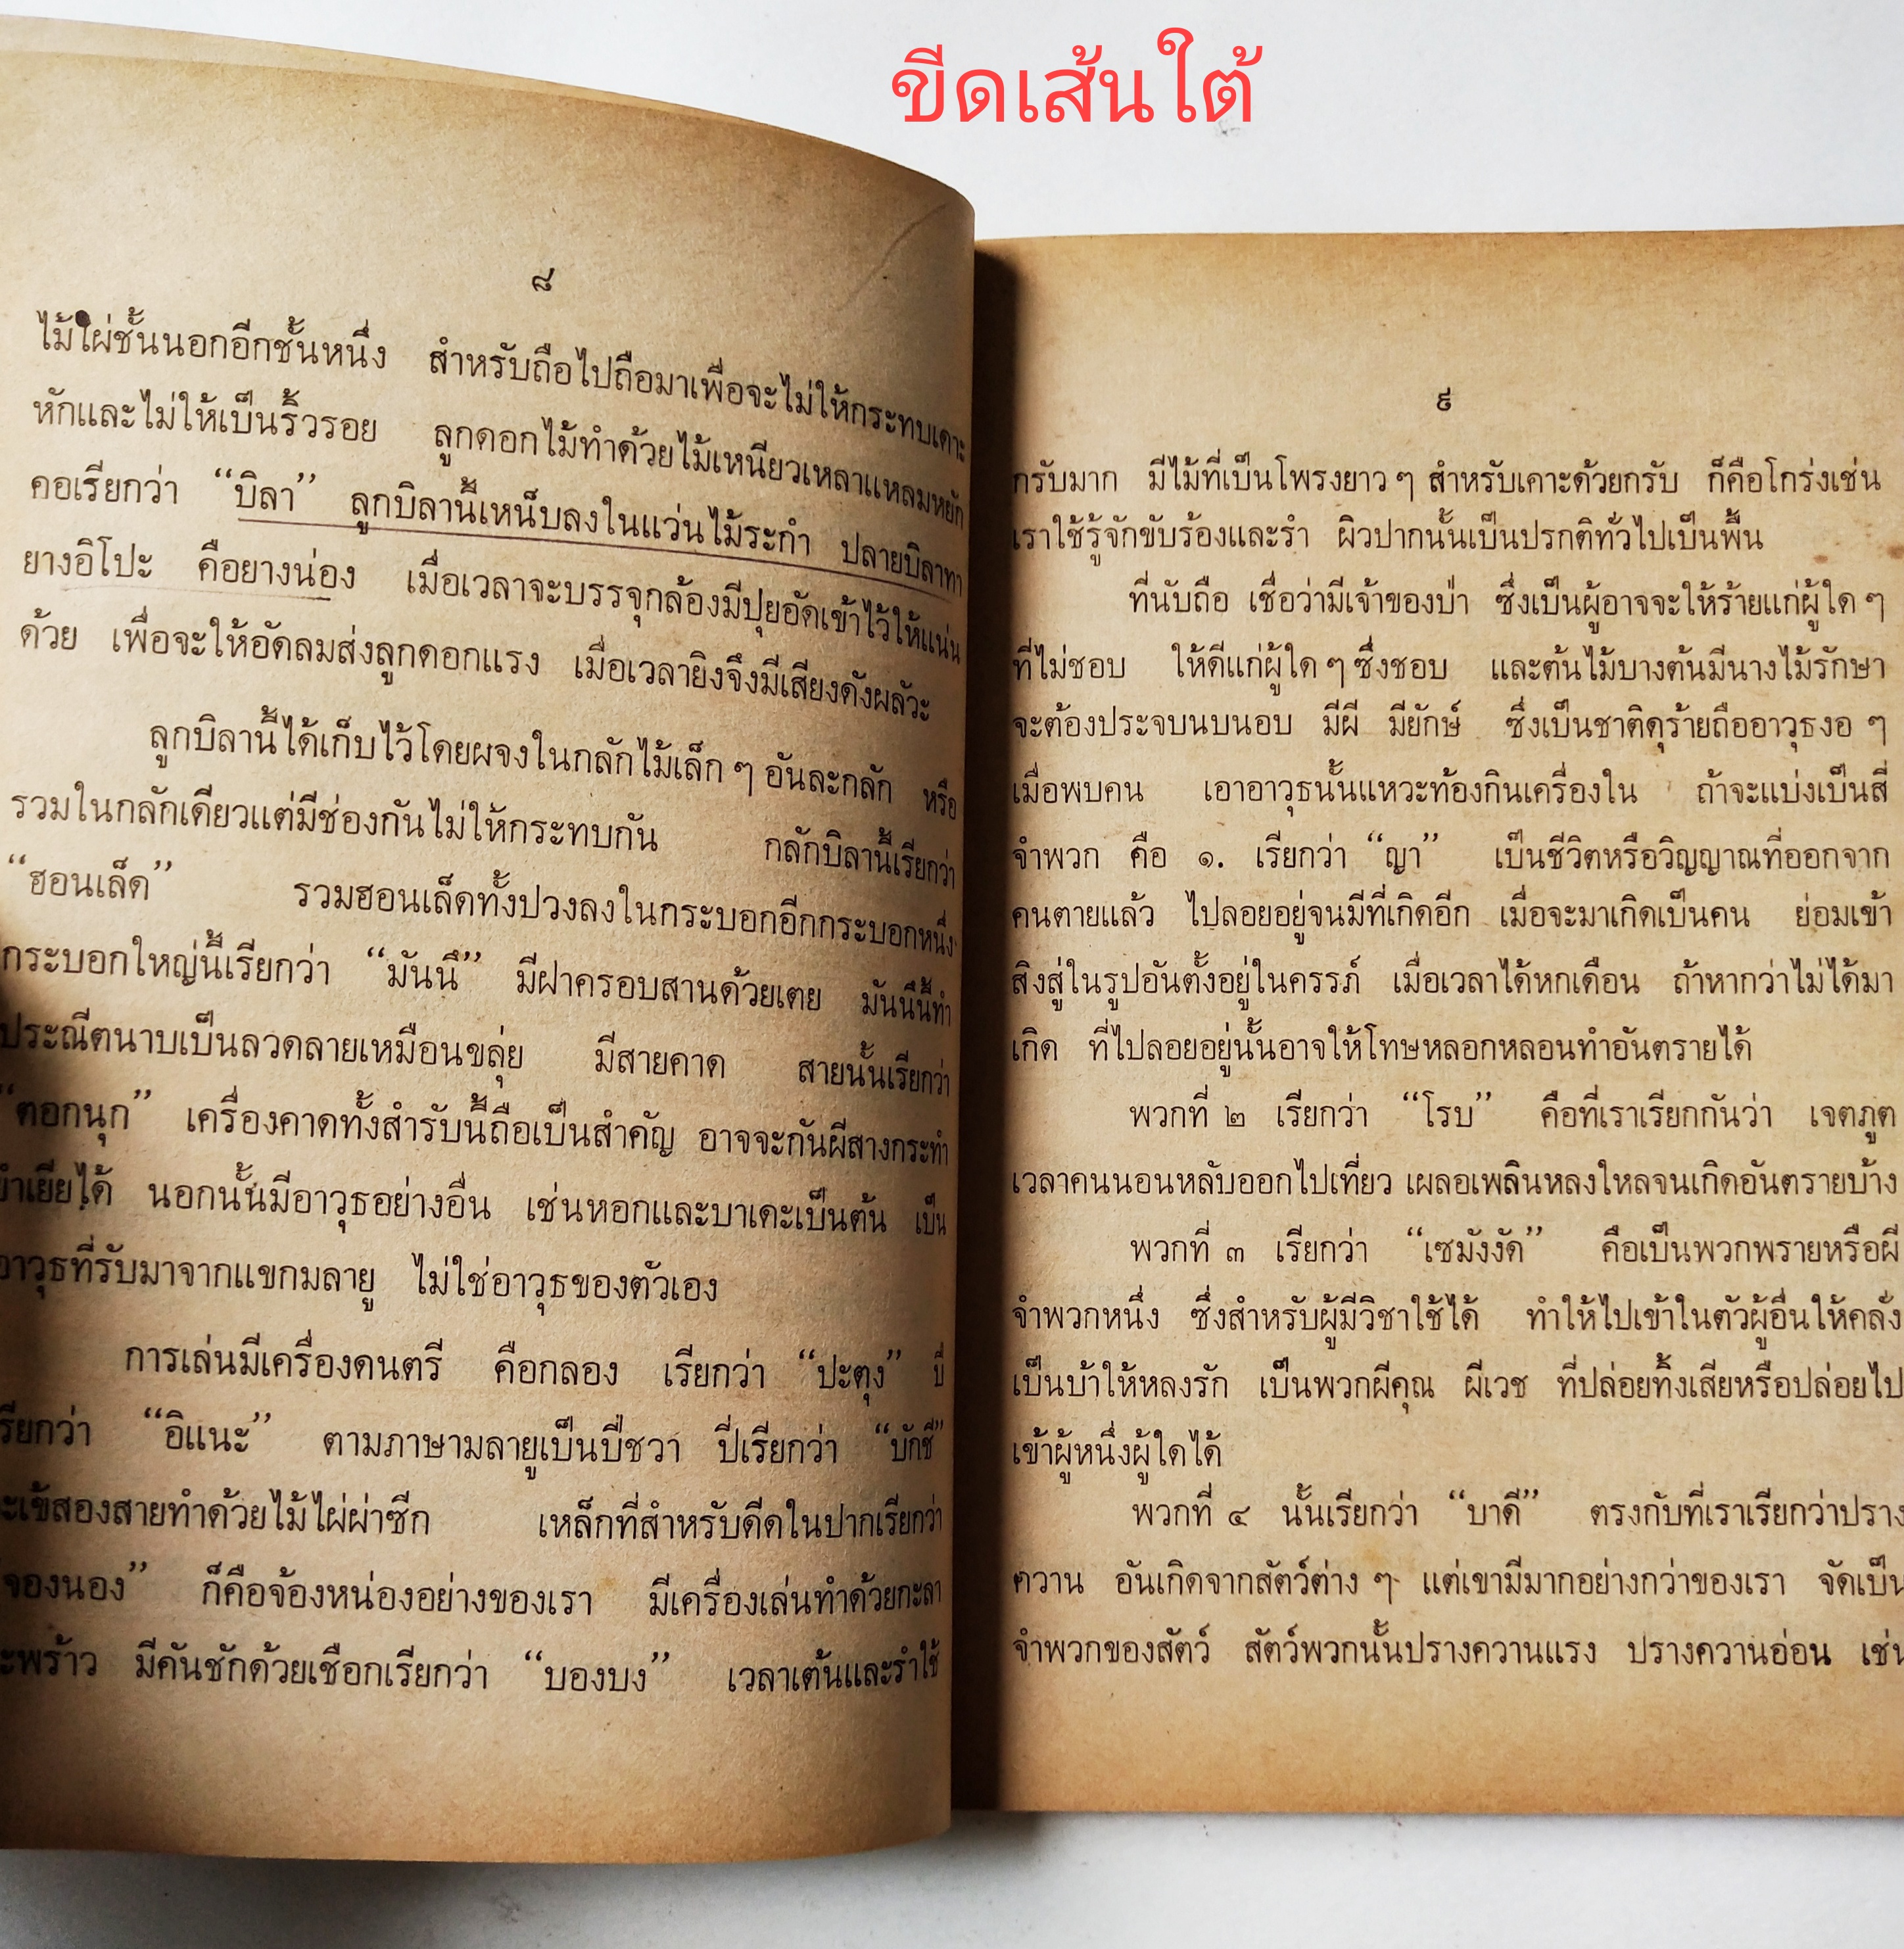 ขีดเส้นใต้
๘
ไม้ไผ่ชั้นนอกอีกชั้นหนึ่ง สำหรับถือไปถือมาเพื่อจะไม่ให้กระทบเคาะ
หักและไม่ให้เป็นริ้วรอย ลูกดอกไม้ทำด้วยไม้เหนียวเหลาแหลมหยัก
คอเรียกว่า “บิลา” ลูกบิลานี้เหน็บลงในแว่นไม้ระกำ ปลายบิลาทา
ยางอิโปะ คือยางน่อง เมื่อเวลาจะบรรจุกล้องมีปุยอัดเข้าไว้ให้แน่น
ด้วย เพื่อจะให้อัดลมส่งลูกดอกแรง เมื่อเวลายิงจึงมีเสียงดังผลัวะ
ลูกบิลานี้ได้เก็บไว้โดยผจงในกลักไม้เล็ก ๆ อันละกลัก หรือ
รวมในกลักเดียวแต่มีช่องกันไม่ให้กระทบกัน กลักบิลานี้เรียกว่า
“ฮอนเล็ด” รวมฮอนเล็ดทั้งปวงลงในกระบอกอีกกระบอกหนึ่ง
กระบอกใหญ่นี้เรียกว่า “มันนึ” มีฝาครอบสานด้วยเตย มันนึนี้ทำ
ประณีตนาบเป็นลวดลายเหมือนขลุ่ย มีสายคาด สายนั้นเรียกว่า
“ตอกนุก” เครื่องคาดทั้งสำรับนี้ถือเป็นสำคัญ อาจจะกันผีสางกระทำ
ย่ำเยียได้ นอกนั้นมีอาวุธอย่างอื่น เช่นหอกและบาเดะเป็นต้น เป็น
อาวุธที่รับมาจากแขกมลายู ไม่ใช่อาวุธของตัวเอง
การเล่นมีเครื่องดนตรี คือกลอง เรียกว่า “ปะตุง” ปี่
เรียกว่า “อิแนะ” ตามภาษามลายูเป็นปี่ชวา ปี่เรียกว่า “บักชี”
ะเข้สองสายทำด้วยไม้ไผ่ผ่าซีก เหล็กที่สำหรับดีดในปากเรียกว่า
จองนอง” ก็คือจ้องหน่องอย่างของเรา มีเครื่องเล่นทำด้วยกะลา
ะพร้าว มีคันชักด้วยเชือกเรียกว่า “บองบง” เวลาเต้นและรำใช้
๙
กรับมาก มีไม้ที่เป็นโพรงยาว ๆ สำหรับเคาะด้วยกรับ ก็คือโกร่งเช่น
เราใช้รู้จักขับร้องและรำ ผิวปากนั้นเป็นปรกติทั่วไปเป็นพื้น
ที่นับถือ เชื่อว่ามีเจ้าของป่า ซึ่งเป็นผู้อาจจะให้ร้ายแก่ผู้ใด ๆ
ที่ไม่ชอบ ให้ดีแก่ผู้ใด ๆ ซึ่งชอบ และต้นไม้บางต้นมีนางไม้รักษา
จะต้องประจบนบนอบ มีผี มียักษ์ ซึ่งเป็นชาติดุร้ายถืออาวุธงอ ๆ
เมื่อพบคน เอาอาวุธนั้นแหวะท้องกินเครื่องใน ถ้าจะแบ่งเป็นสี่
จำพวก คือ ๑. เรียกว่า “ญา” เป็นชีวิตหรือวิญญาณที่ออกจาก
คนตายแล้ว ไปลอยอยู่จนมีที่เกิดอีก เมื่อจะมาเกิดเป็นคน ย่อมเข้า
สิงสู่ในรูปอันตั้งอยู่ในครรภ์ เมื่อเวลาได้หกเดือน ถ้าหากว่าไม่ได้มา
เกิด ที่ไปลอยอยู่นั้นอาจให้โทษหลอกหลอนทำอันตรายได้
พวกที่ ๒ เรียกว่า “โรบ” คือที่เราเรียกกันว่า เจตภูต
เวลาคนนอนหลับออกไปเที่ยว เผลอเพลินหลงใหลจนเกิดอันตรายบ้าง
พวกที่ ๓ เรียกว่า “เซมังงัด” คือเป็นพวกพรายหรือผี
จำพวกหนึ่ง ซึ่งสำหรับผู้มีวิชาใช้ได้ ทำให้ไปเข้าในตัวผู้อื่นให้คลั่ง
เป็นบ้าให้หลงรัก เป็นพวกผีคุณ ผีเวช ที่ปล่อยทิ้งเสียหรือปล่อยไป
เข้าผู้หนึ่งผู้ใดได้
พวกที่ ๔ นั้นเรียกว่า “บาดี” ตรงกับที่เราเรียกว่าปราง
ควาน อันเกิดจากสัตว์ต่าง ๆ แต่เขามีมากอย่างกว่าของเรา จัดเป็น
จำพวกของสัตว์ สัตว์พวกนั้นปรางควานแรง ปรางควานอ่อน เช่น